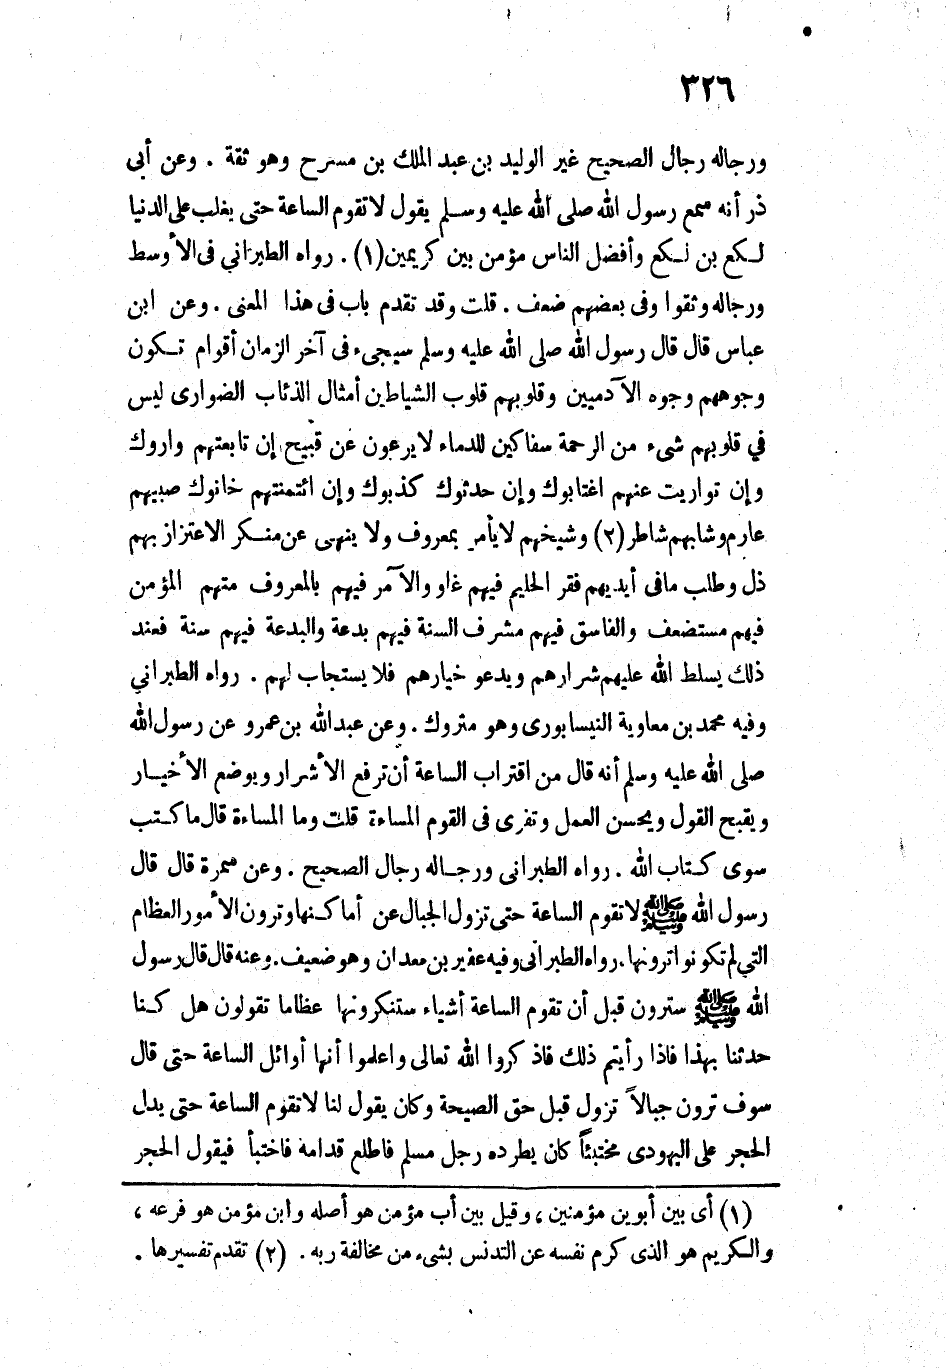 ٣٢٦
ورجاله رجال الصحيح غير الوليد بن عبد الملك بن مسرح وهو ثقة . وعن أبى
ذر أنه سمع رسول الله صلى الله عليه وسلم يقول لا تقوم الساعة حتى يغلب على الدنيا
لكع بن لكع وأفضل الناس مؤمن بين كريمين (١) . رواه الطبرانى فى الأوسط
ورجاله وثقوا وفى بعضهم ضعف . قلت وقد تقدم باب فى هذا المعنى . وعن ابن
عباس قال قال رسول الله صلى الله عليه وسلم سيجىء فى آخر الزمان أقوام تكون
وجوههم وجوه الآدميين وقلوبهم قلوب الشياطين أمثال الذئاب الضوارى ليس
في قلوبهم شىء من الرحمة سفاكين للدماء لا يرعون عن قبيح إن تابعتهم واروك
وإن تواريت عنهم اغتابوك وإن حدثوك كذبوك وإن ائتمنتهم خانوك صبيهم
عارم وشابهم شاطر (٢) وشيخهم لا يأمر بمعروف ولا ينهى عن منكر الاعتزاز بهم
ذل وطلب مافى أيديهم فقر الحليم فيهم غاو والآمر فيهم بالمعروف متهم المؤمن
فيهم مستضعف والفاسق فيهم مشرف السنة فيهم بدعة والبدعة فيهم سنة فعند
ذلك يسلط الله عليهم شرارهم ويدعو خيارهم فلا يستجاب لهم . رواه الطبراني
وفيه محمد بن معاوية النيسابورى وهو متروك . وعن عبد الله بن عمرو عن رسول الله
صلى الله عليه وسلم أنه قال من اقتراب الساعة أن ترفع الأشرار ويوضع الأخيار
ويقبح القول ويحسن العمل وتفرى فى القوم المساءة قلت وما المساءة قال ما كتب
سوى كتاب الله . رواه الطبرانى ورجاله رجال الصحيح . وعن سمرة قال قال
رسول الله ﷺ لا تقوم الساعة حتى تزول الجبال عن أماكنها وترون الأمور العظام
التي لم تكونوا ترونها . رواه الطبرانى وفيه عفير بن معدان وهو ضعيف . وعنه قال قال رسول
الله ﷺ سترون قبل أن تقوم الساعة أشياء ستنكرونها عظاما تقولون هل كنا
حدثنا بهذا فاذا رأيتم ذلك فاذكروا الله تعالى واعلموا أنها أوائل الساعة حتى قال
سوف ترون جبالاً تزول قبل حق الصيحة وكان يقول لنا لا تقوم الساعة حتى يدل
الحجر على اليهودى مختبئاً كان يطرده رجل مسلم فاطلع قدامه فاختبأ فيقول الحجر
(١) أى بين أبوين مؤمنين ، وقيل بين أب مؤمن هو أصله وابن مؤمن هو فرعه ،
والكريم هو الذى كرم نفسه عن التدنس بشىء من مخالفة ربه . (٢) تقدم تفسيرها .